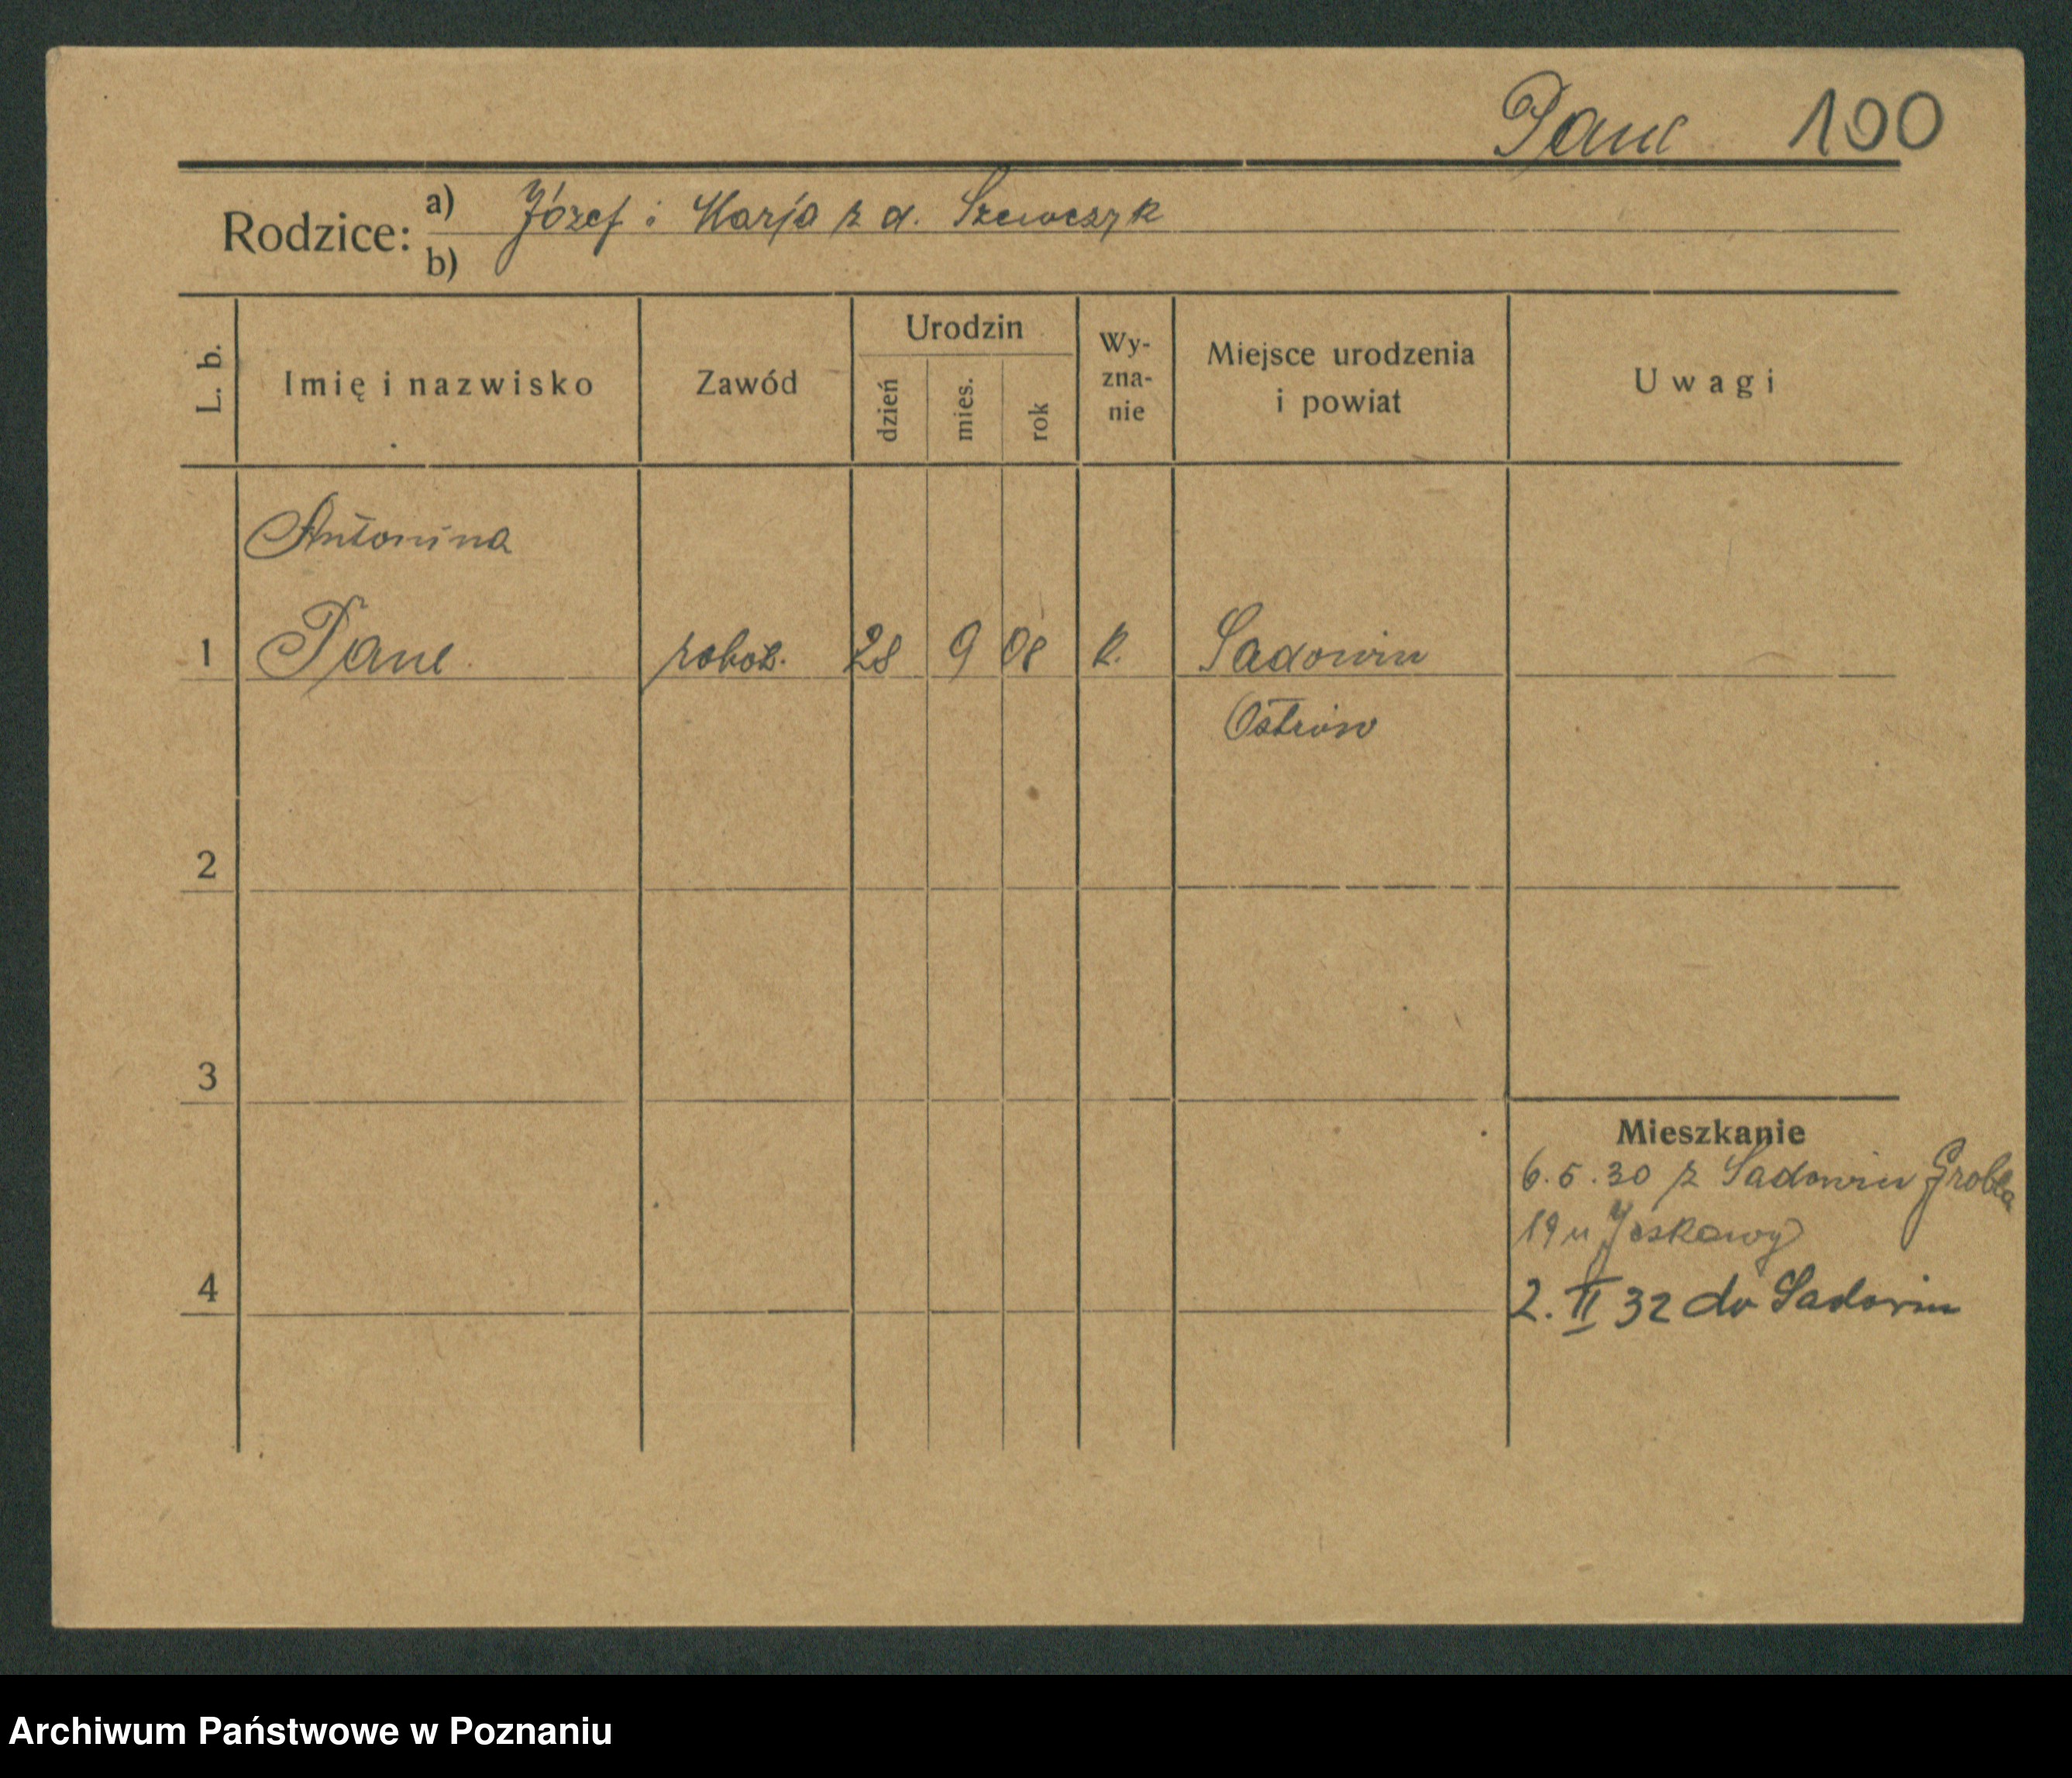 Panc 100
Rodzice: a) Józef i Marja z d. Szewczyk
b)
L. b. Imię i nazwisko Zawód Urodzin dzień mies. rok Wy-zna-nie Miejsce urodzenia i powiat Uwagi
Antonina
1 Panc. robot. 28 9 08 k. Sadowin
Ostrów
2
3
Mieszkanie
6.5.30 z Sadowin Grobla
19 u
4 2. II 32 do Sadowin
Archiwum Państwowe w Poznaniu